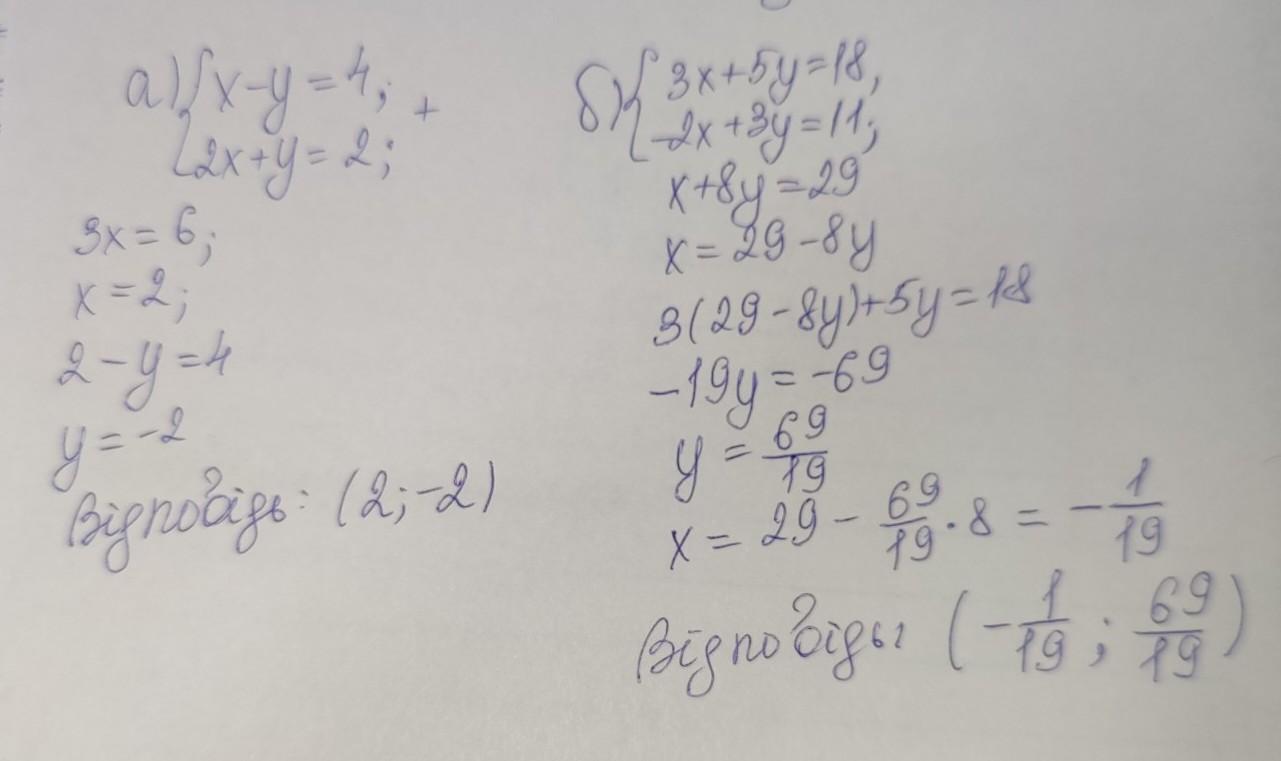 а) { x-y=4; +
2x+y=2;
3x=6;
x=2;
2-y=4
y=-2
Відповідь: (2;-2)
б) { 3x+5y=18,
-2x+3y=11;
x+8y=29
x=29-8y
3(29-8y)+5y=18
-19y=-69
y=69/19
x=29-69/19·8=-1/19
Відповідь: (-1/19; 69/19)